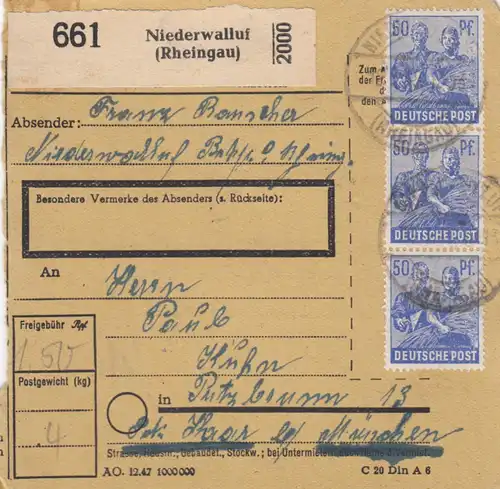 661
Niederwalluf
(Rheingau)
2000
Zum
der F
den A
50 Pf.
DEUTSCHE POST
50 Pf.
DEUTSCHE POST
50 Pf.
DEUTSCHE POST
Franz Rauscher
Absender:
Niederwalluf
Besondere Vermerke des Absenders (s. Rückseite):
An
Herrn
Paul
Kuhn
in Putzbrunn 13
Post Haar bei München
Straße, Hausnr., Gebäudet., Stockw.; bei Untermietern
Freigebühr Rpf
1 50
Postgewicht (kg)
4
AO. 12.47 1000000
C 20 Din A 6